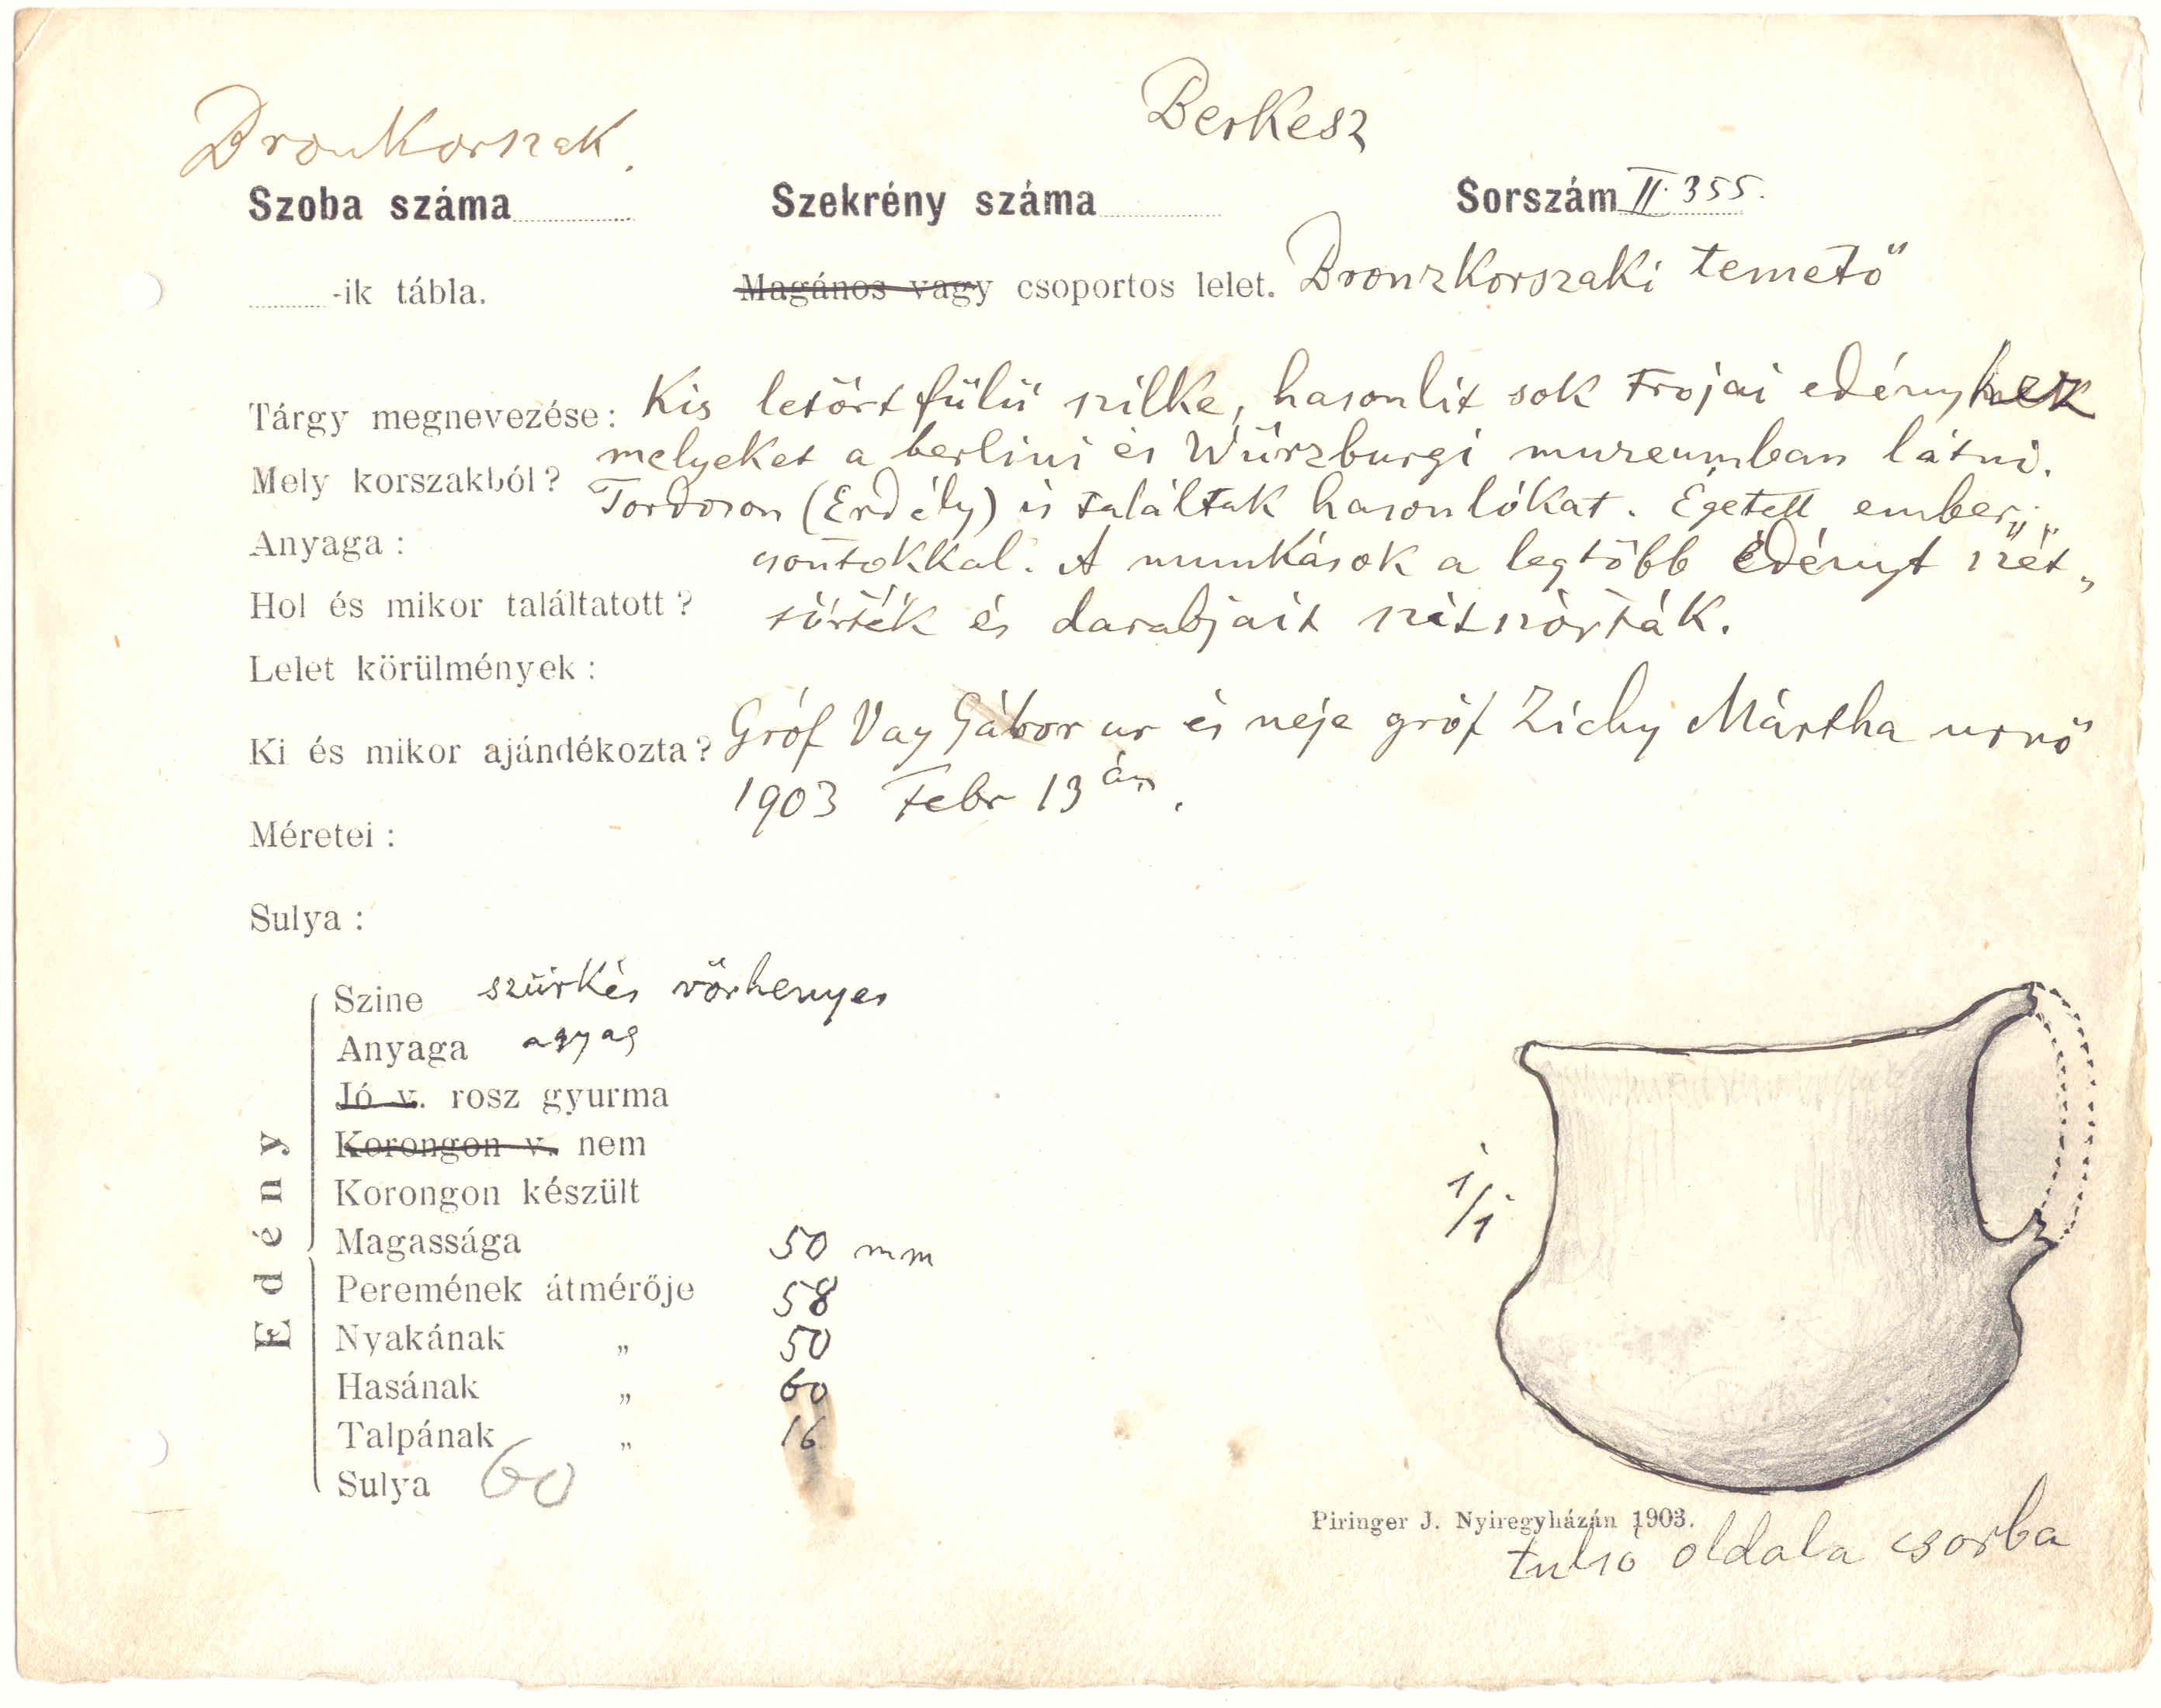 Berkesz
Bronkorszak.
Szoba száma
Szekrény száma
Sorszám II. 355.
-ik tábla.
Magános vagy csoportos lelet. Bronzkorszaki temető
Tárgy megnevezése: Kis letört fülü szilke, hasonlit sok trojai edényhez
melyeket a berlini és Würzburgi muzeumban látni.
Mely korszakból?
Tordoson (Erdély) is találtak hasonlókat. Égetett ember„
Anyaga:
csontokkal. A munkások a legtöbb edényt szét„
Hol és mikor találtatott?
törték és darabjait szétszórták.
Lelet körülmények:
Ki és mikor ajándékozta? Gróf Vay Gábor ur és neje gróf Zichy Mártha urnő
1903 Febr 13án.
Méretei:
Sulya:
Edény
Szine szürkés vörhenyes
Anyaga agyag
Jó v. rosz gyurma
Korongon v. nem
Korongon készült
Magassága 50 mm
Peremének átmérője 58
Nyakának „ 50
Hasának „ 60
Talpának „ 16
Sulya 60
1/1
Piringer J. Nyiregyházán 1903.
tulsó oldala csorba